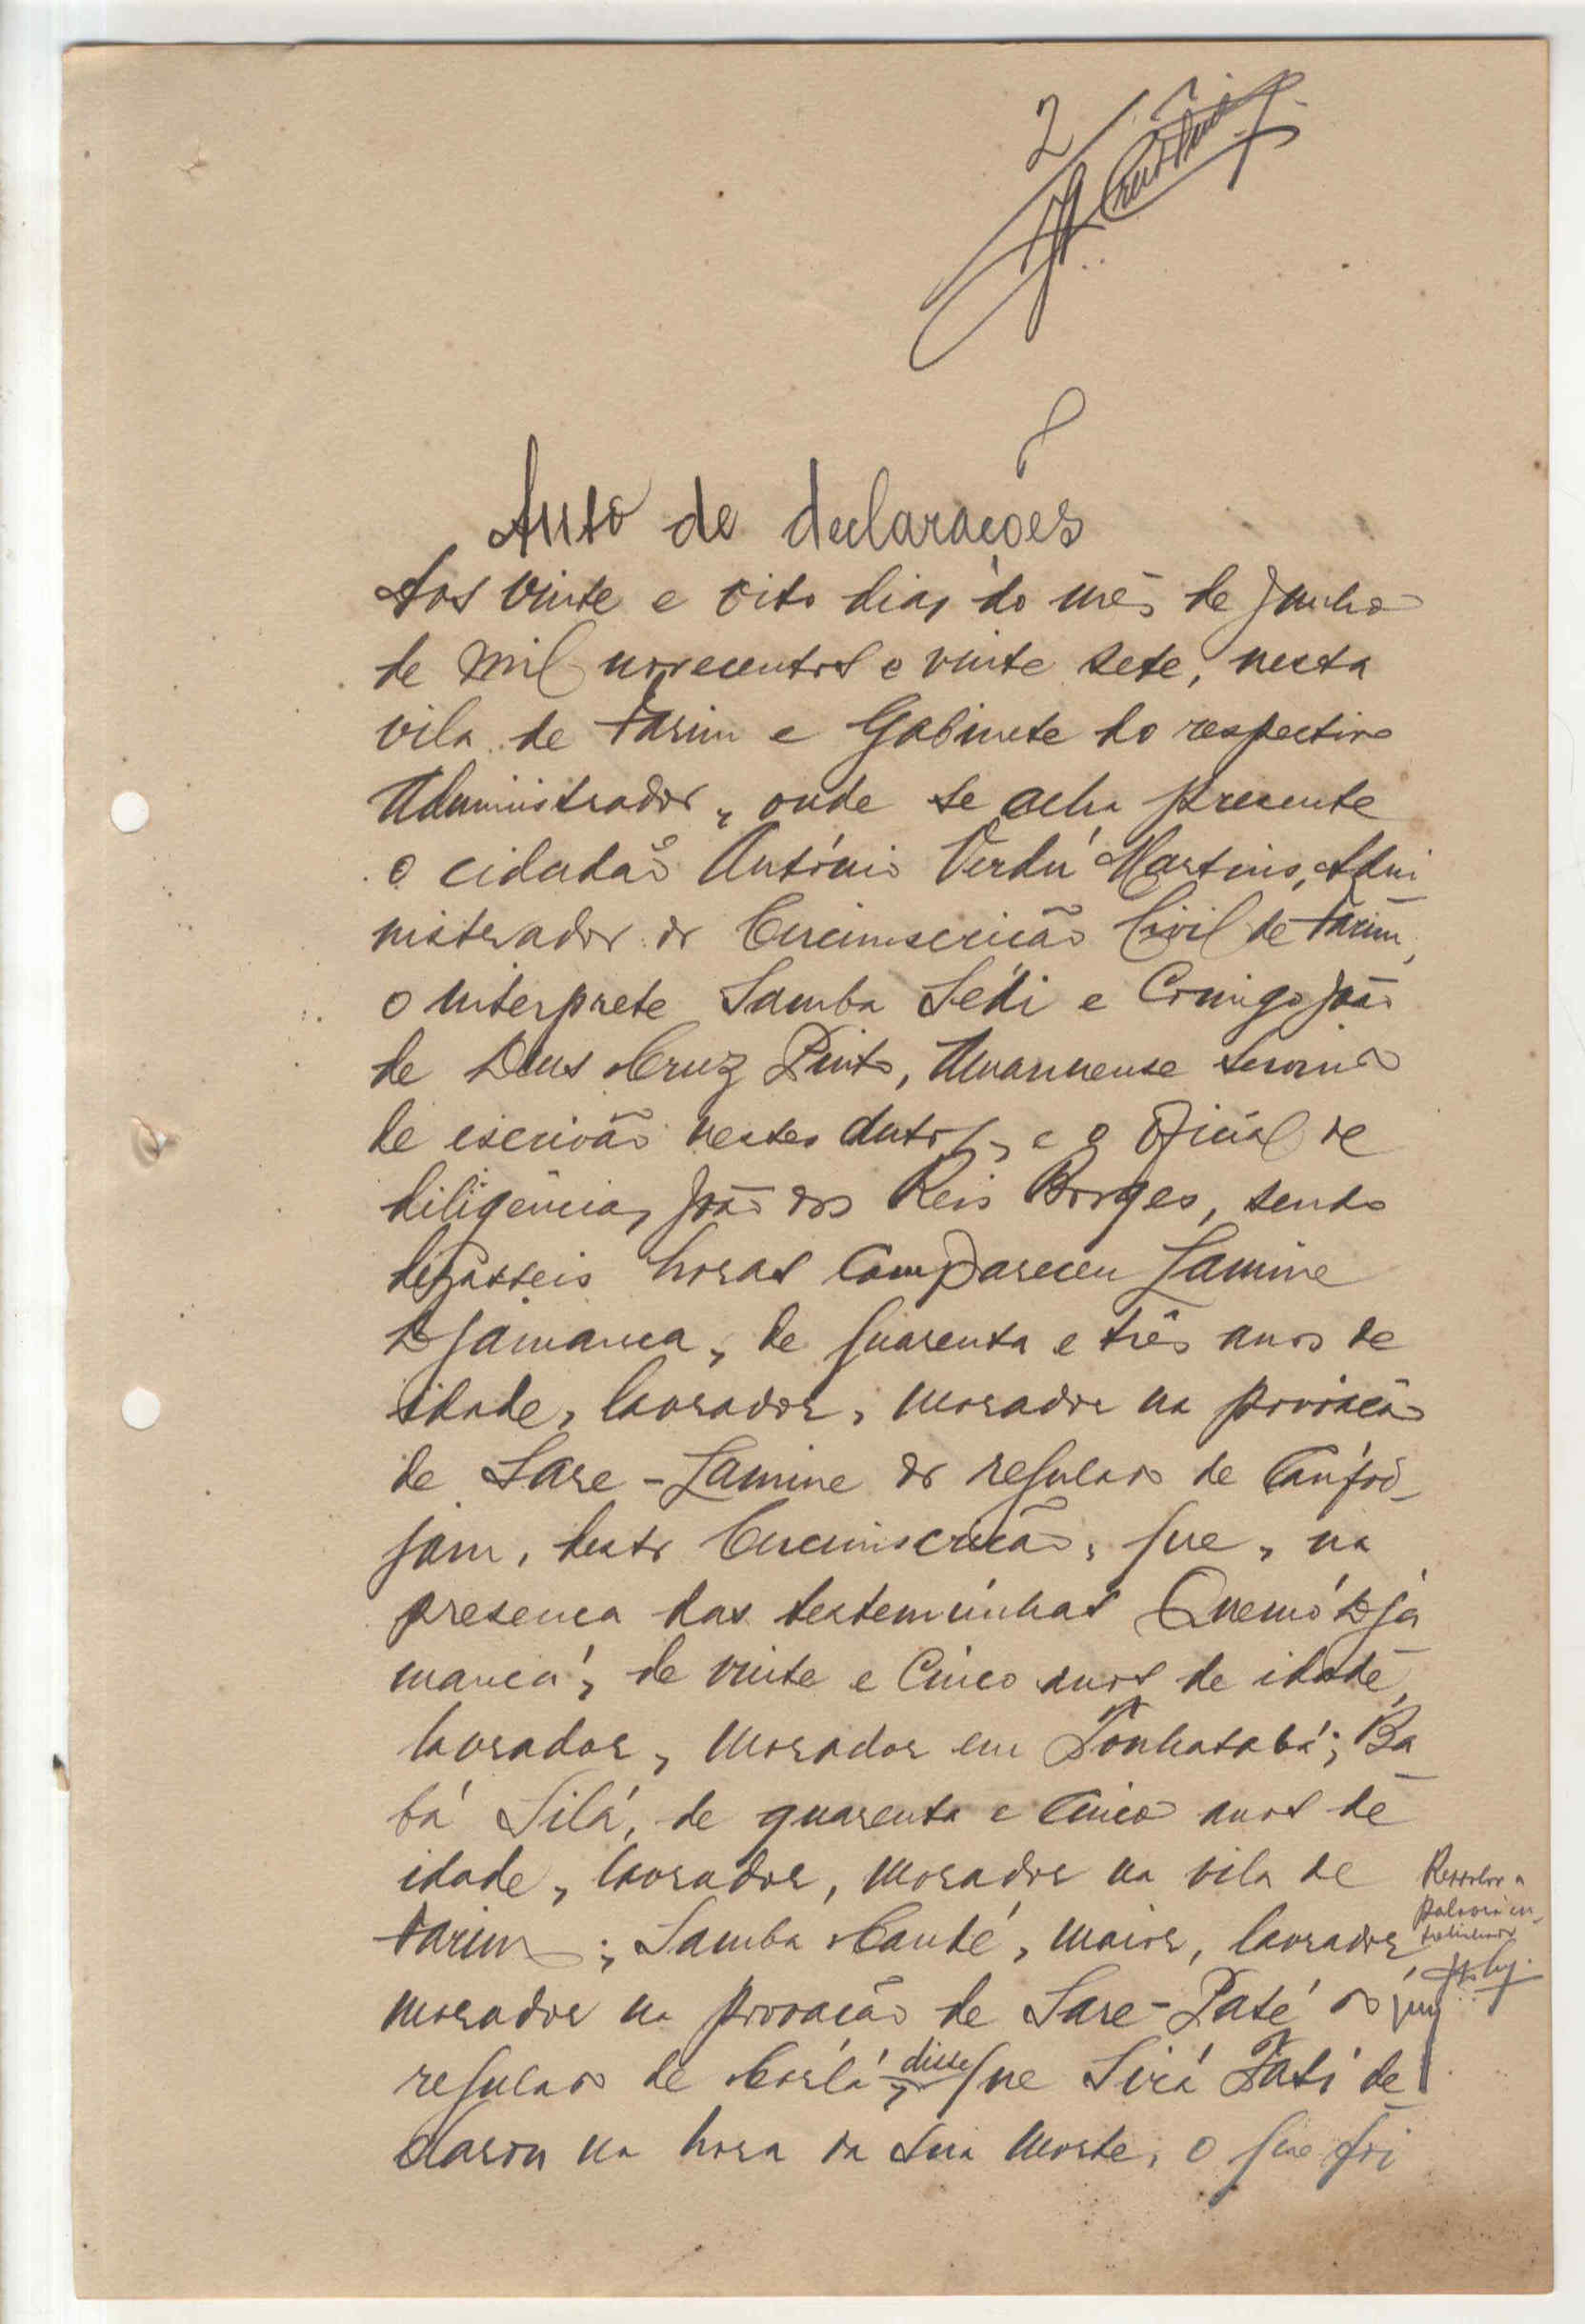 2
Auto de declarações
Aos vinte e oito dias do mês de Junho
de mil novecentos e vinte sete, nesta
vila de Farim e Gabinete do respectivo
Administrador, onde se acha presente
o cidadão António Verdú Martins, Admi
nistrador da Circunscrição Civil de Farim,
o interprete Samba Sédi e Comigo João
de Deus Cruz Pinto, Amanuense servindo
de escrivão nestes autos, e o Oficial de
diligências João dos Reis Borges, sendo
dezasseis horas Compareceu Lamine
Djamanca, de quarenta e três anos de
idade, lavrador, morador na povoação
de Sare-Lamine do regulado de Canfod-
jam, desta Circunscrição, que, na
presença das testemunhas Quemó Dja
mancá, de vinte e Cinco anos de idade,
lavrador, morador em Tonhatabá; Ba
bá Silá, de quarenta e Cinco anos de
idade, lavrador, morador na vila de
Farim; Samba Candé, maior, lavrador,
morador na povoação de Sare-Paté do
regulado de Corlá, disse que Sirá Fati de
clarou na hora da sua morte, o que foi
Ressalvo a
palavra en-
trelinhada